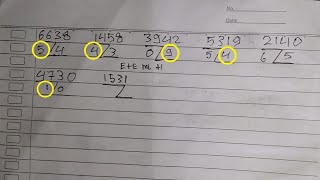 No.
Date
6638 1458 3942 5319 2140
5/4 9/3 0/9 5/4 6/5
E+E ML +1
4730 1531
1/0 /